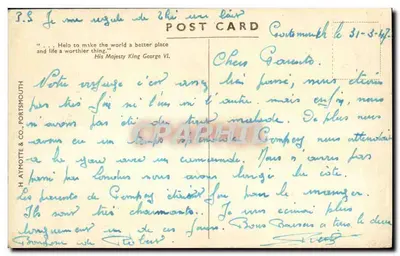 P.S Je me régale de thé un bain
POST CARD
"... Help to make the world a better place
and life a worthier thing."
His Majesty King George VI.
Portsmouth le 31-3-47
Chers Parents.
Notre voyage c'est assez bien passé, nous étions
pas très fier ni l'un ni l'autre mais enfin, nous
n'avons pas été du tout malade. De plus nous
avons eu un temps Compsy nous attendait
à la gare avec un camarade. Nous
par Londres nous avons longé la côte.
les parents de Compsy étaient pour le manger.
Ils sont très charmants. Je vous écrirai plus
longuement un de ces jours. Bons Baisers et tous le deux
Bonjour de Robert
H AYMOTTE & CO., PORTSMOUTH